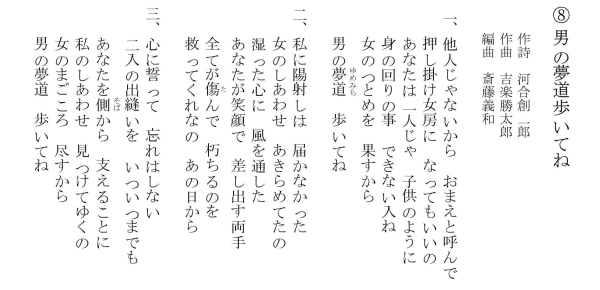 ⑧ 男の夢道歩いてね
作詩　河合創一郎
作曲　吉楽勝太郎
編曲　斎藤義和
一、他人じゃないから　おまえと呼んで
押し掛け女房に　なってもいいの
あなたは一人じゃ　子供のように
身の回りの事　できない入ね
女のつとめを　果すから
ゆめみち
男の夢道　歩いてね
二、私に陽射しは　届かなかった
女のしあわせ　あきらめてたの
湿った心に　風を通した
あなたが笑顔で　差し出す両手
た
全てが傷んで　朽ちるのを
救ってくれなの　あの日から
三、心に誓って　忘れはしない
二入の出縫いを　いついつまでも
そば
あなたを側から　支えることに
私のしあわせ　見つけてゆくの
女のまごころ　尽すから
男の夢道　歩いてね